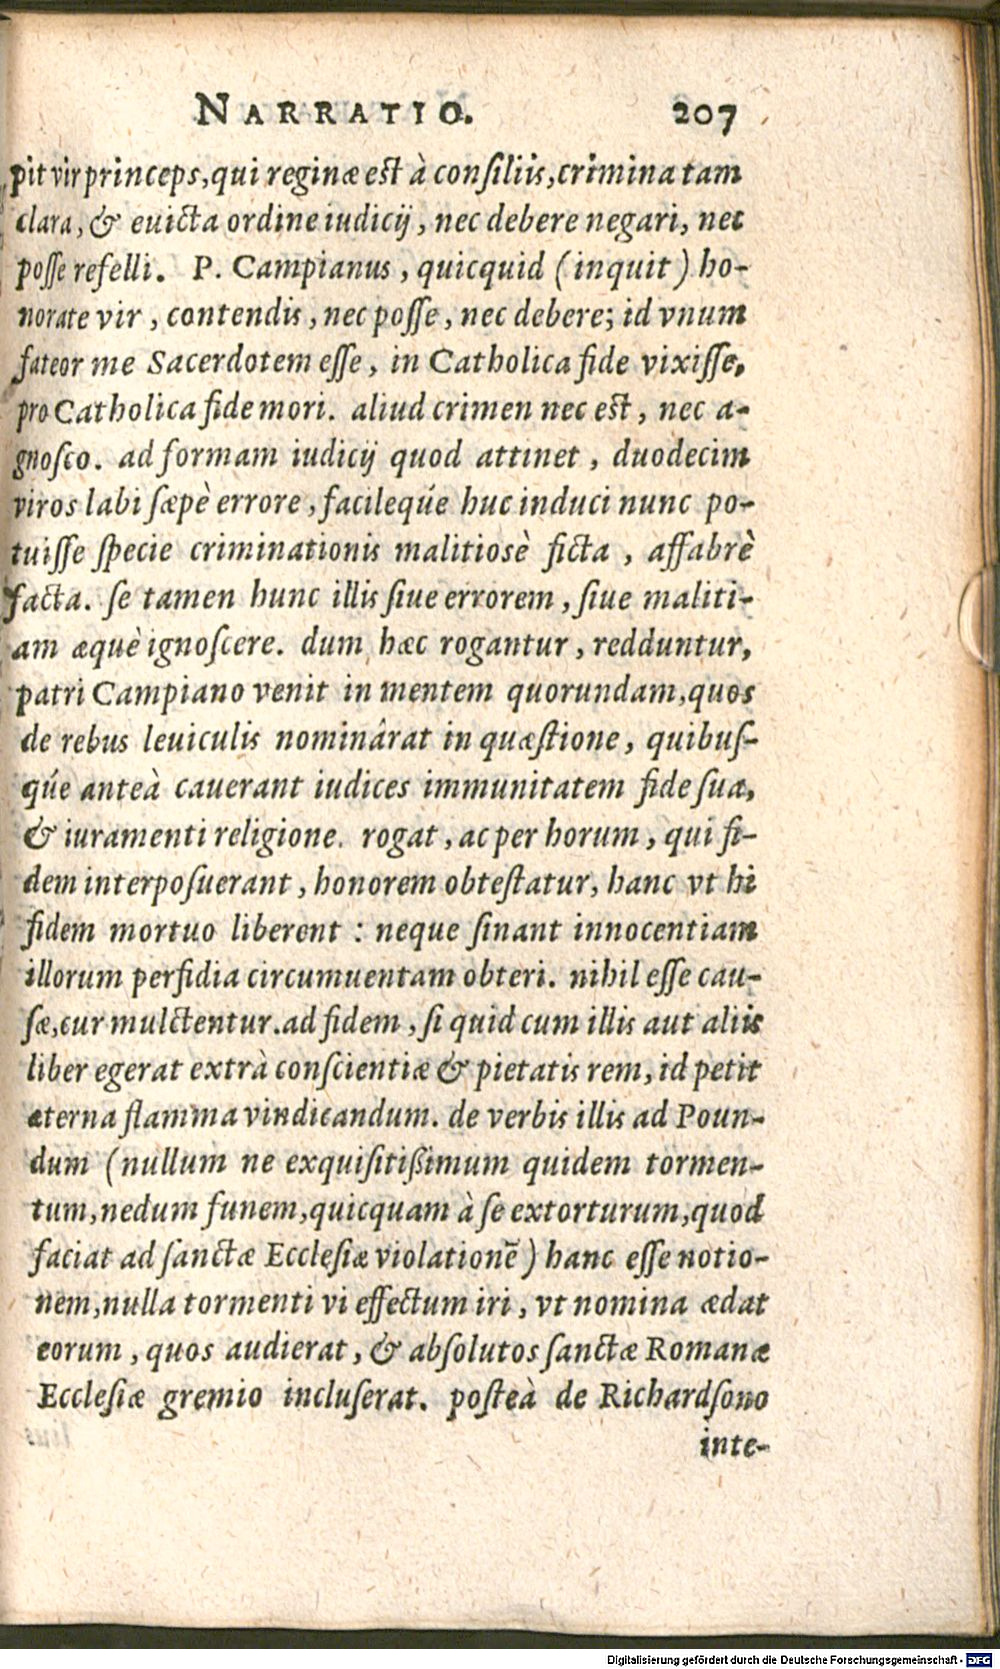 NARRATIO. 207
pit vir princeps, qui reginæ est à consiliis, crimina tam
clara, & euicta ordine iudicij, nec debere negari, nec
posse refelli. P. Campianus, quicquid (inquit) ho-
norate vir, contendis, nec posse, nec debere; id vnum
fateor me Sacerdotem esse, in Catholica fide vixisse,
pro Catholica fide mori. aliud crimen nec est, nec a-
gnosco. ad formam iudicij quod attinet, duodecim
viros labi sæpè errore, facileq́ue huc induci nunc po-
tuisse specie criminationis malitiosè ficta, affabrè
facta. se tamen hunc illis siue errorem, siue maliti-
am æquè ignoscere. dum hæc rogantur, redduntur,
patri Campiano venit in mentem quorundam, quos
de rebus leuiculis nominârat in quæstione, quibus-
q́ue anteà cauerant iudices immunitatem fide sua,
& iuramenti religione. rogat, ac per horum, qui fi-
dem interposuerant, honorem obtestatur, hanc vt hi
fidem mortuo liberent : neque sinant innocentiam
illorum perfidia circumuentam obteri. nihil esse cau-
sæ, cur mulctentur. ad fidem, si quid cum illis aut aliis
liber egerat extrà conscientiæ & pietatis rem, id petit
æterna flamma vindicandum. de verbis illis ad Poun-
dum (nullum ne exquisitißimum quidem tormen-
tum, nedum funem, quicquam à se extorturum, quod
faciat ad sanctæ Ecclesiæ violationē) hanc esse notio-
nem, nulla tormenti vi effectum iri, vt nomina ædat
eorum, quos audierat, & absolutos sanctæ Romanæ
Ecclesiæ gremio incluserat. posteà de Richardsono
inte-
Digitalisierung gefördert durch die Deutsche Forschungsgemeinschaft - DFG